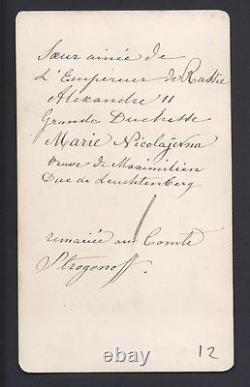 Sœur ainée de
L'Empereur de Russie
Alexandre II
Grande Duchesse
Marie Nicolajevna
veuve de Maximilien
Duc de Leuchtenberg
remariée au Comte
Strogonoff.
12
ebay.com